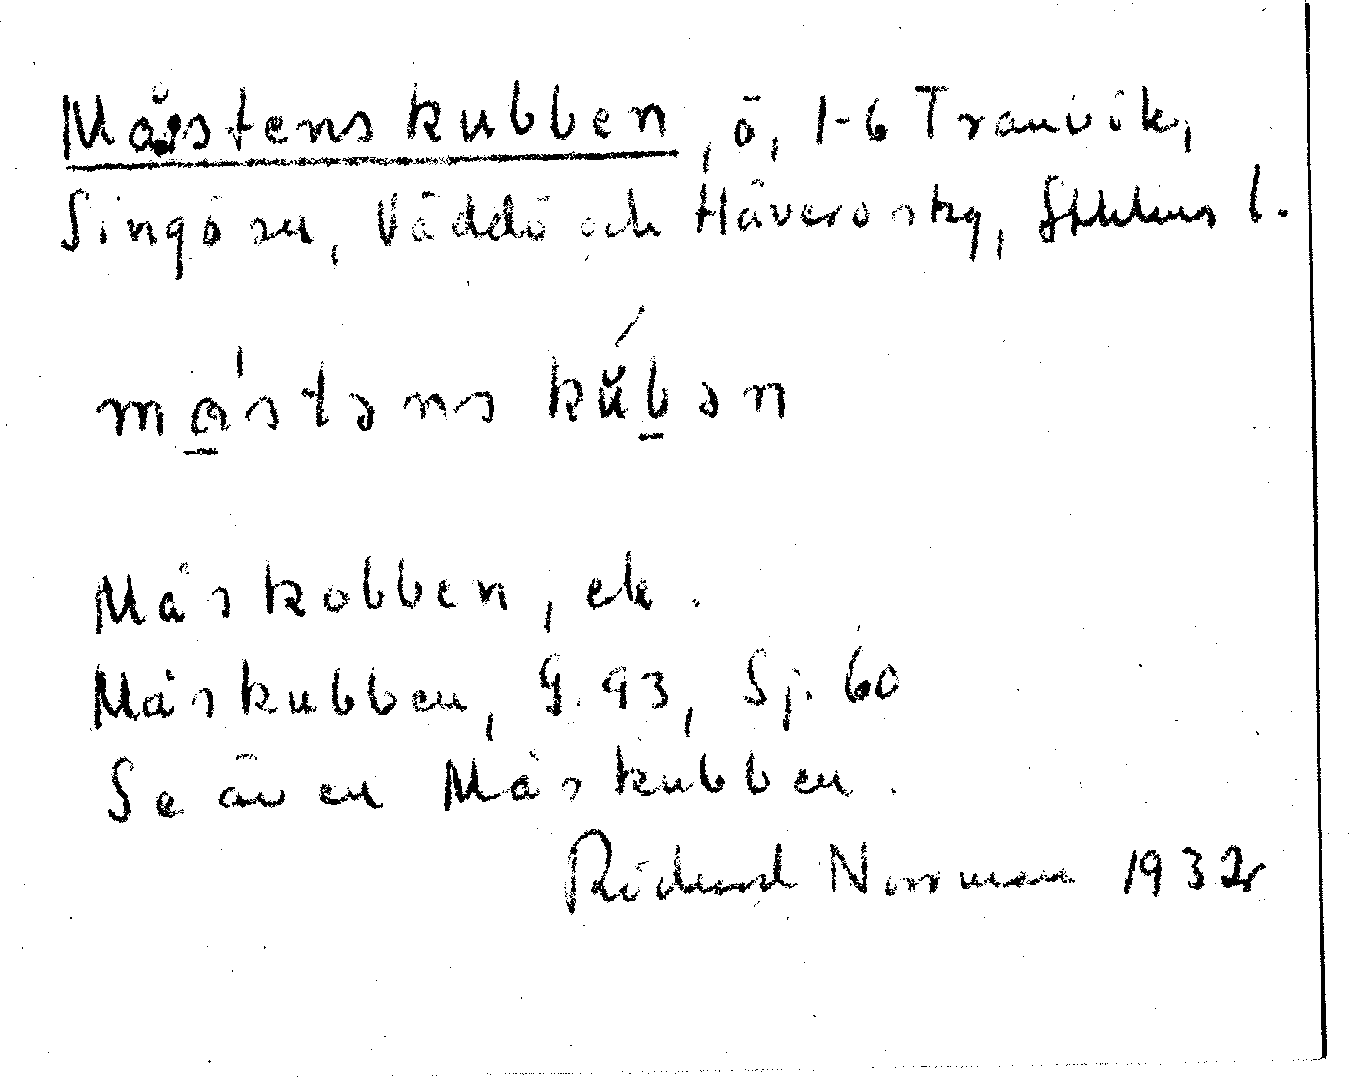 Måstenskubben, ö, 1-6 Tranvik,
Singö sn, Väddö och Häverö skg, Sthlms l.
måstəns kŭbən
Måskobben, ek.
Måskubben, G. 93, Sj. 60
Se även Måskubben.
Rödlund Norrman 1932